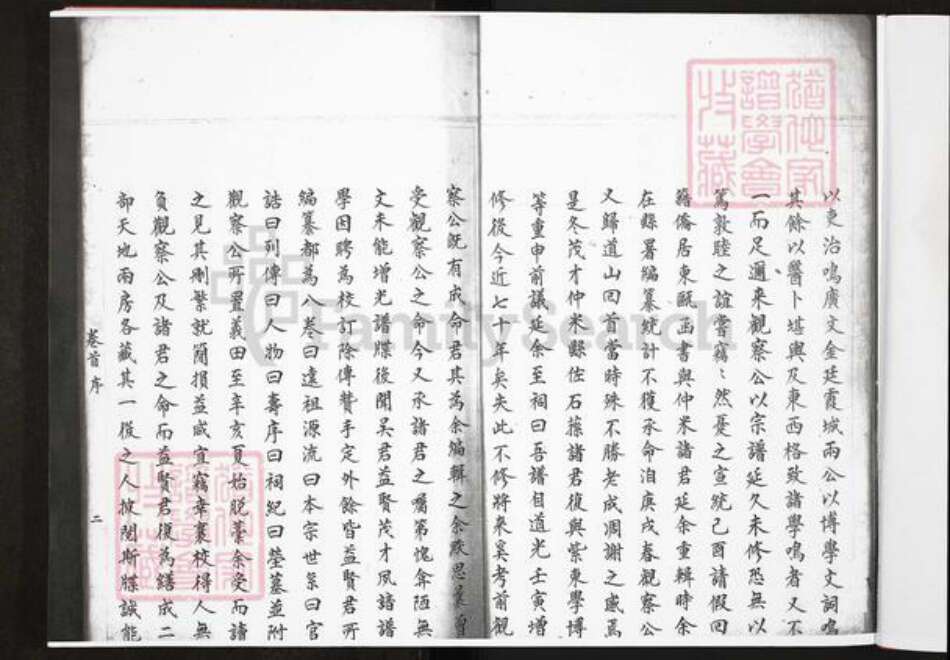 以吏治鳴廣文金廷霞城兩公以博學文詞鳴
其餘以醫卜堪輿及東西格致諸學鳴者又不
一而足邇來觀察公以宗譜延久未修恐無以
篤敦睦之誼嘗竊竊然憂之宣統己酉請假回
籍僑居東甌函書與仲米諸君延余重輯時余
在縣署編纂統計不獲承命洎庚戌春觀察公
又歸道山回首當時殊不勝老成凋謝之感焉
是冬茂才仲米縣佐石蓀諸君復與紫東學博
等重申前議延余至祠曰吾譜自道光壬寅增
修後今近七十年矣失此不修將來奚考前觀
察公既有成命君其為余編輯之余默思曩曾
受觀察公之命今又承諸君之囑第愧弇陋無
文未能增光譜牒後聞吳君益賢茂才夙諳譜
學因聘為校訂除傳贊手定外餘皆益賢君所
編纂都為八卷曰遠祖源流曰本宗世系曰官
誥曰列傳曰人物曰壽序曰祠紀曰塋墓並附
觀察公所置義田至辛亥夏始脫藁余受而讀
之見其刪繁就簡損益咸宜竊幸襄校得人無
負觀察公及諸君之命而益賢君復為繕成二
部天地兩房各藏其一後之人披閱斯牒誠能
卷首 序
二
譜學會
收藏
FamilySearch